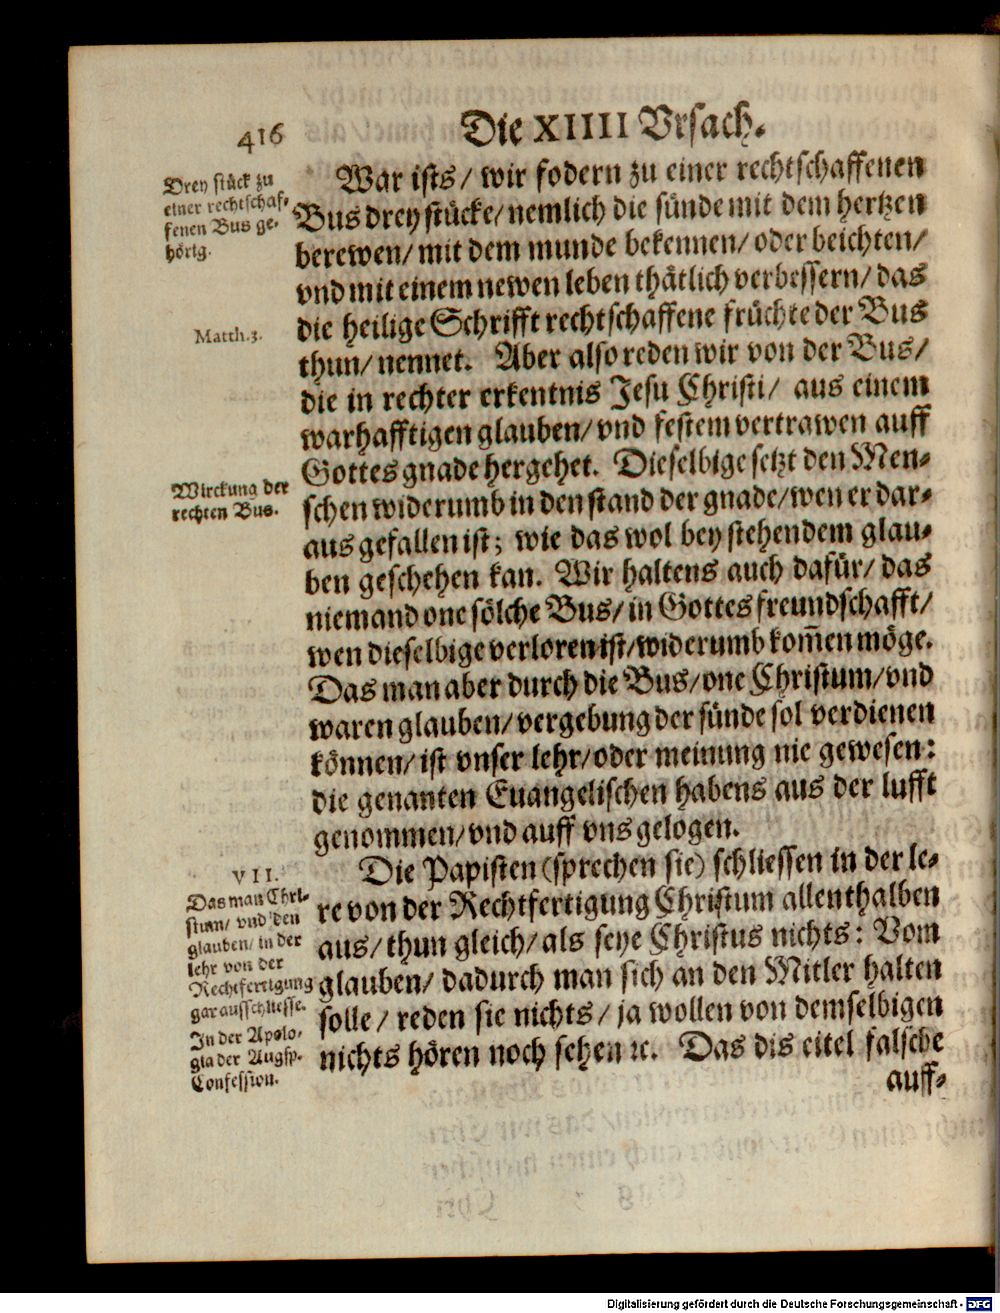 416
Die XIIII Vrsach.
Drey stück zu
einer rechtschaf-
fenen Bus ge-
hörig.
War ists/ wir fodern zu einer rechtschaffenen
Bus drey stücke/ nemlich die sünde mit dem hertzen
berewen/ mit dem munde bekennen/ oder beichten/
vnd mit einem newen leben thätlich verbessern/ das
die heilige Schrifft rechtschaffene früchte der Bus
Matth.3.
thun/ nennet. Aber also reden wir von der Bus/
die in rechter erkentnis Jesu Christi/ aus einem
warhafftigen glauben/ vnd festem vertrawen auff
Gottes gnade hergehet. Dieselbige setzt den Men-
Wirckung der
rechten Bus.
schen widerumb in den stand der gnade/ wen er dar-
aus gefallen ist; wie das wol bey stehendem glau-
ben geschehen kan. Wir haltens auch dafür/ das
niemand one sölche Bus/ in Gottes freundschafft/
wen dieselbige verloren ist/ widerumb kom̄en möge.
Das man aber durch die Bus/ one Christum/ vnd
waren glauben/ vergebung der sünde sol verdienen
können/ ist vnser lehr/ oder meinung nie gewesen:
die genanten Euangelischen habens aus der lufft
genommen/ vnd auff vns gelogen.
VII.
Das man Chri-
stum/ vnd den
glauben/ in der
lehr von der
Rechtfertigung
gar ausschliesse.
In der Apolo-
gia der Augsp.
Confession.
Die Papisten (sprechen sie) schliessen in der le-
re von der Rechtfertigung Christum allenthalben
aus/ thun gleich/ als seye Christus nichts: Vom
glauben/ dadurch man sich an den Mitler halten
solle/ reden sie nichts/ ja wollen von demselbigen
nichts hören noch sehen ꝛc. Das dis eitel falsche
auff-
Digitalisierung gefördert durch die Deutsche Forschungsgemeinschaft - DFG